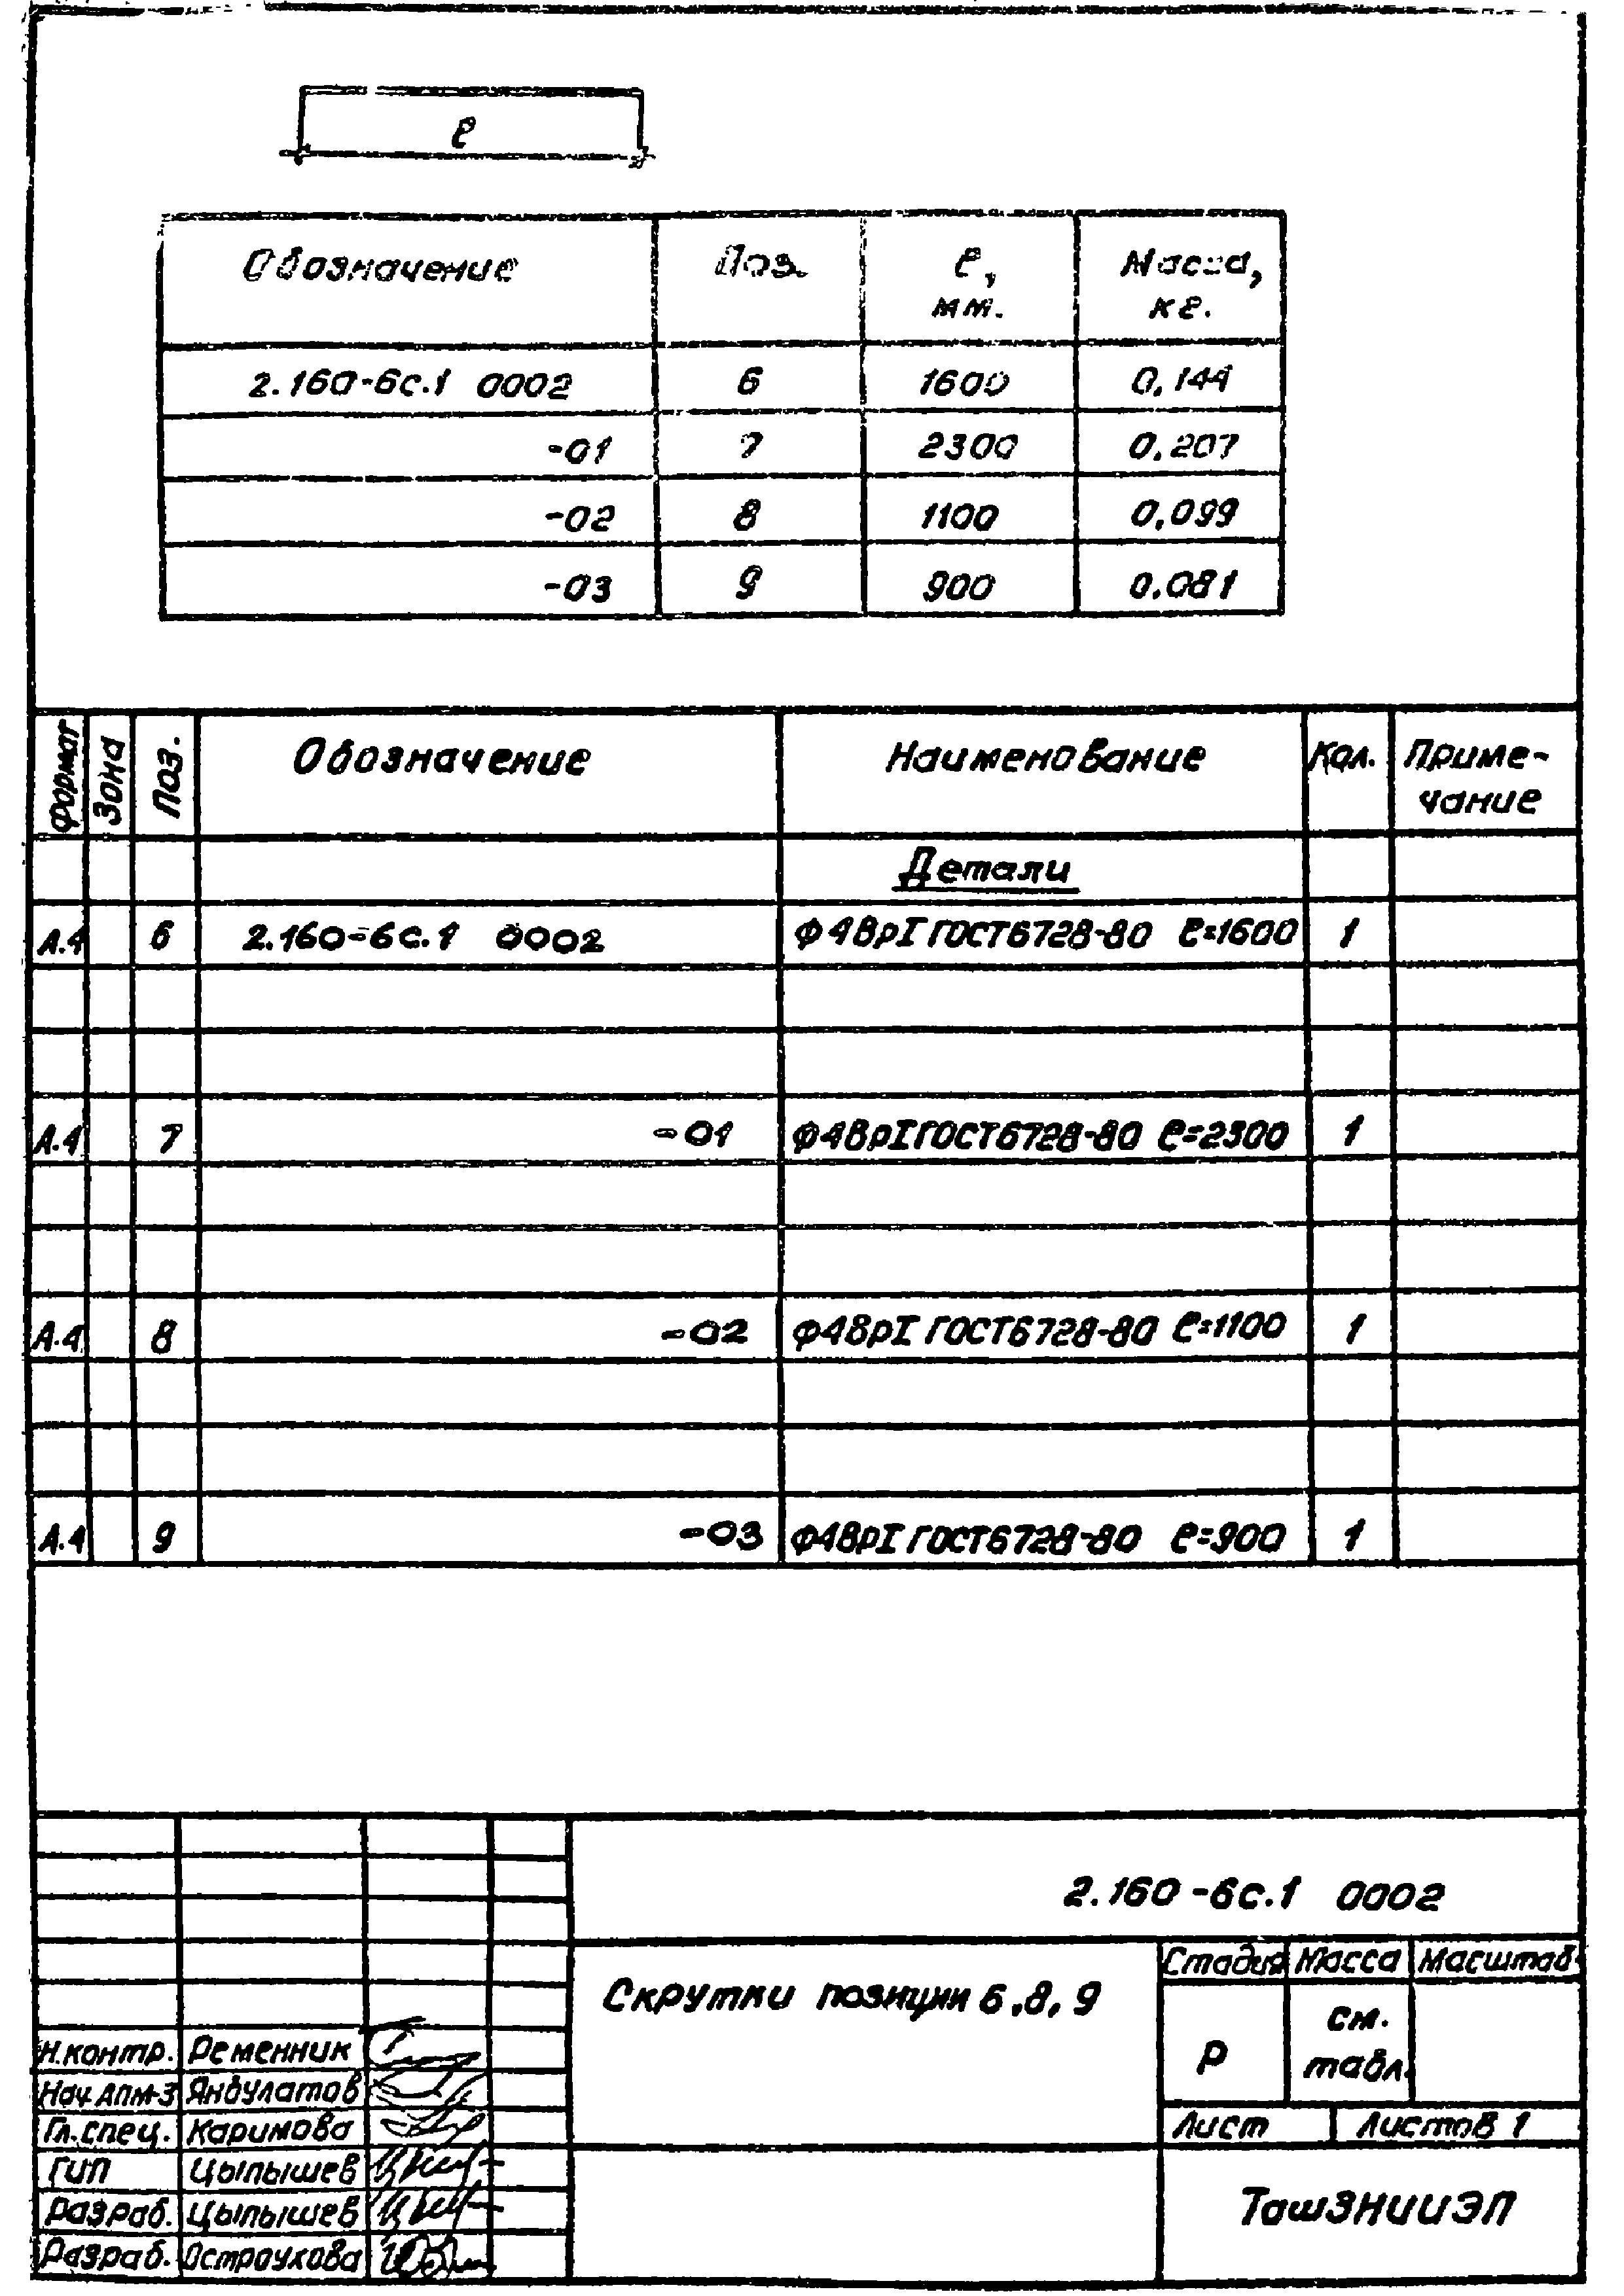 ℓ
Обозначение Поз. ℓ, мм. Масса, кг.
2.160-6с.1 0002 6 1600 0,144
-01 7 2300 0,207
-02 8 1100 0,099
-03 9 900 0.081
Формат Зона Поз. Обозначение Наименование Кол. Приме-
чание
Детали
А.4 6 2.160-6с.1 0002 Ф4ВрI ГОСТ6728-80 ℓ=1600 1
А.4 7 -01 Ф4ВрI ГОСТ6728-80 ℓ=2300 1
А.4 8 -02 Ф4ВрI ГОСТ6728-80 ℓ=1100 1
А.4 9 -03 Ф4ВрI ГОСТ6728-80 ℓ=900 1
2.160-6с.1 0002
Скрутки позиции 6,8,9
Стадия Масса Масштаб
Р см. табл.
Лист Листов 1
ТашЗНИИЭП
Н.контр. Ременник
Нач.АПМ-3 Яндулатов
Гл.спец. Каримова
ГИП Цыпышев
Разраб. Цыпышев
Разраб. Остроухова